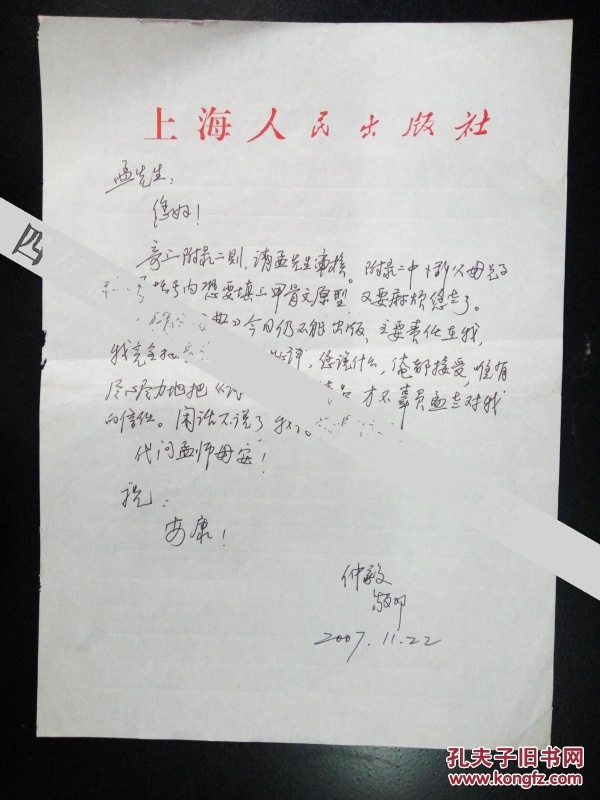 上海人民出版社
孟先生：
您好！
四
寄上附录二则，请孟先生审核。附录二中
括号内想要填上甲骨文原型 又要麻烦您老了。
今日仍不能出版，主要责任在我，
我完全接 批评，您说什么，俺都接受，唯有
尽心尽力地把 才不辜负孟老对我
的信任。闲话不说了
代问孟师母安！
祝：
安康！
仲毅
敬叩
2007.11.22
孔夫子旧书网
www.kongfz.com